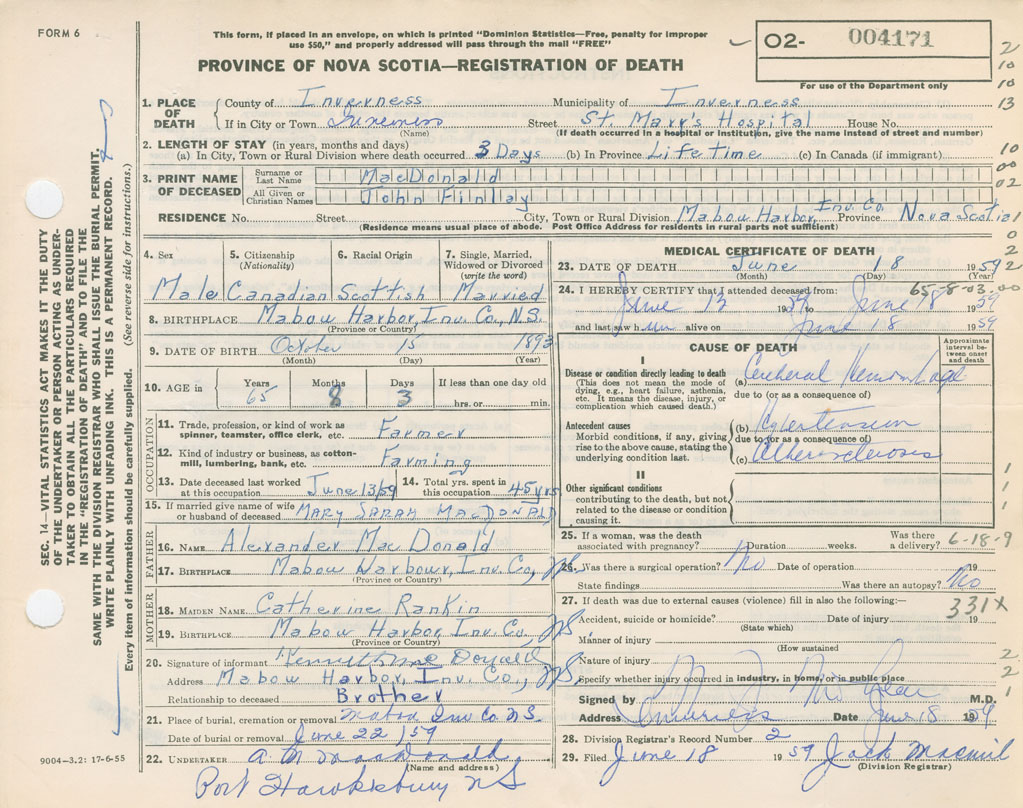 FORM 6
This form, if placed in an envelope, on which is printed "Dominion Statistics—Free, penalty for improper
use $50," and properly addressed will pass through the mail "FREE"
02- 004171
For use of the Department only
PROVINCE OF NOVA SCOTIA—REGISTRATION OF DEATH
2
10
10
13
10
00
02
0
2
2
SEC. 14—VITAL STATISTICS ACT MAKES IT THE DUTY
OF THE UNDERTAKER OR PERSON ACTING AS UNDER-
TAKER TO OBTAIN ALL THE PARTICULARS REQUIRED
IN THE "REGISTRATION OF DEATH" AND TO FILE IT
SAME WITH THE DIVISION REGISTRAR WHO SHALL ISSUE THE BURIAL PERMIT.
WRITE PLAINLY WITH UNFADING INK. THIS IS A PERMANENT RECORD.
Every item of information should be carefully supplied. (See reverse side for instructions.)
1. PLACE OF DEATH County of Inverness Municipality of Inverness
If in City or Town Inverness Street St Mary's Hospital House No.
(Name) (If death occurred in a hospital or institution, give the name instead of street and number)
2. LENGTH OF STAY (in years, months and days)
(a) In City, Town or Rural Division where death occurred 3 Days (b) In Province Life time (c) In Canada (if immigrant)
3. PRINT NAME OF DECEASED Surname or Last Name MacDonald
All Given or Christian Names John Finlay
RESIDENCE No. Street City, Town or Rural Division Mabou Harbor, Inv. Co. Province Nova Scotia
(Residence means usual place of abode. Post Office Address for residents in rural parts not sufficient)
4. Sex 5. Citizenship (Nationality) 6. Racial Origin 7. Single, Married, Widowed or Divorced (write the word)
Male Canadian Scottish Married
8. BIRTHPLACE Mabou Harbor, Inv. Co., N.S.
(Province or Country)
9. DATE OF BIRTH October 15 1893
(Month) (Day) (Year)
10. AGE in Years Months Days If less than one day old
65 8 3 hrs. or min.
OCCUPATION
11. Trade, profession, or kind of work as spinner, teamster, office clerk, etc. Farmer
12. Kind of industry or business, as cotton-mill, lumbering, bank, etc. Farming
13. Date deceased last worked at this occupation June 13/59 14. Total yrs. spent in this occupation 45 yrs
15. If married give name of wife or husband of deceased MARY SARAH MACDONALD
FATHER
16. NAME Alexander Mac Donald
17. BIRTHPLACE Mabou Harbour, Inv. Co., NS
(Province or Country)
MOTHER
18. MAIDEN NAME Catherine Rankin
19. BIRTHPLACE Mabou Harbor, Inv. Co., NS
(Province or Country)
20. Signature of informant Kenneth Mac Donald
Address Mabou Harbor, Inv. Co., NS.
Relationship to deceased Brother
21. Place of burial, cremation or removal Mabou Inv Co. N S.
Date of burial or removal June 22/59
22. UNDERTAKER A. M Macdonald
(Name and address)
Port Hawkesbury N S
9004—3.2: 17-6-55
MEDICAL CERTIFICATE OF DEATH
23. DATE OF DEATH June 18 1959
(Month) (Day) (Year)
24. I HEREBY CERTIFY that I attended deceased from: 65-8-03.00
June 13 1959 to June 18 1959
and last saw h im alive on June 18 1959
CAUSE OF DEATH
Approximate interval between onset and death
I
Disease or condition directly leading to death
(This does not mean the mode of dying, e.g., heart failure, asthenia, etc. It means the disease, injury, or complication which caused death.)
(a) Cerebral Hemorrhage
due to (or as a consequence of)
Antecedent causes
Morbid conditions, if any, giving rise to the above cause, stating the underlying condition last.
(b) Hypertension
due to (or as a consequence of)
(c) Atherosclerosis
II
Other significant conditions
contributing to the death, but not related to the disease or condition causing it.
1
1
1
25. If a woman, was the death associated with pregnancy? Duration weeks. Was there a delivery? 6-18-9
26. Was there a surgical operation? No Date of operation 19
State findings Was there an autopsy? No
27. If death was due to external causes (violence) fill in also the following:— 331X
Accident, suicide or homicide? Date of injury 19
(State which)
Manner of injury
(How sustained
Nature of injury
Specify whether injury occurred in industry, in home, or in public place
2
2
1
Signed by M.D.
Address Inverness Date June 18 1959
28. Division Registrar's Record Number 2
29. Filed June 18 1959 Jack
(Division Registrar)